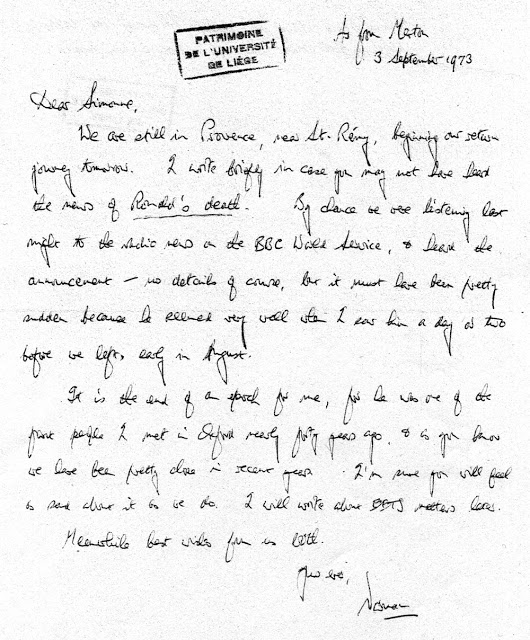 PATRIMOINE
DE L'UNIVERSITÉ
DE LIÈGE
As from Merton
3 September 1973
Dear Simonne,
We are still in Provence, near St. Rémy, beginning our return
journey tomorrow. I write briefly in case you may not have heard
the news of Ronald's death. By chance we were listening last
night to the radio news on the BBC World Service, & heard the
announcement – no details of course, but it must have been pretty
sudden because he seemed very well when I saw him a day or two
before we left, early in August.
It is the end of an epoch for me, for he was one of the
first people I met in Oxford nearly forty years ago, & as you know
we have been pretty close in recent years. I'm sure you will feel
as sad about it as we do. I will write about EETS matters later.
Meanwhile best wishes from us both.
Yours ever,
Norman